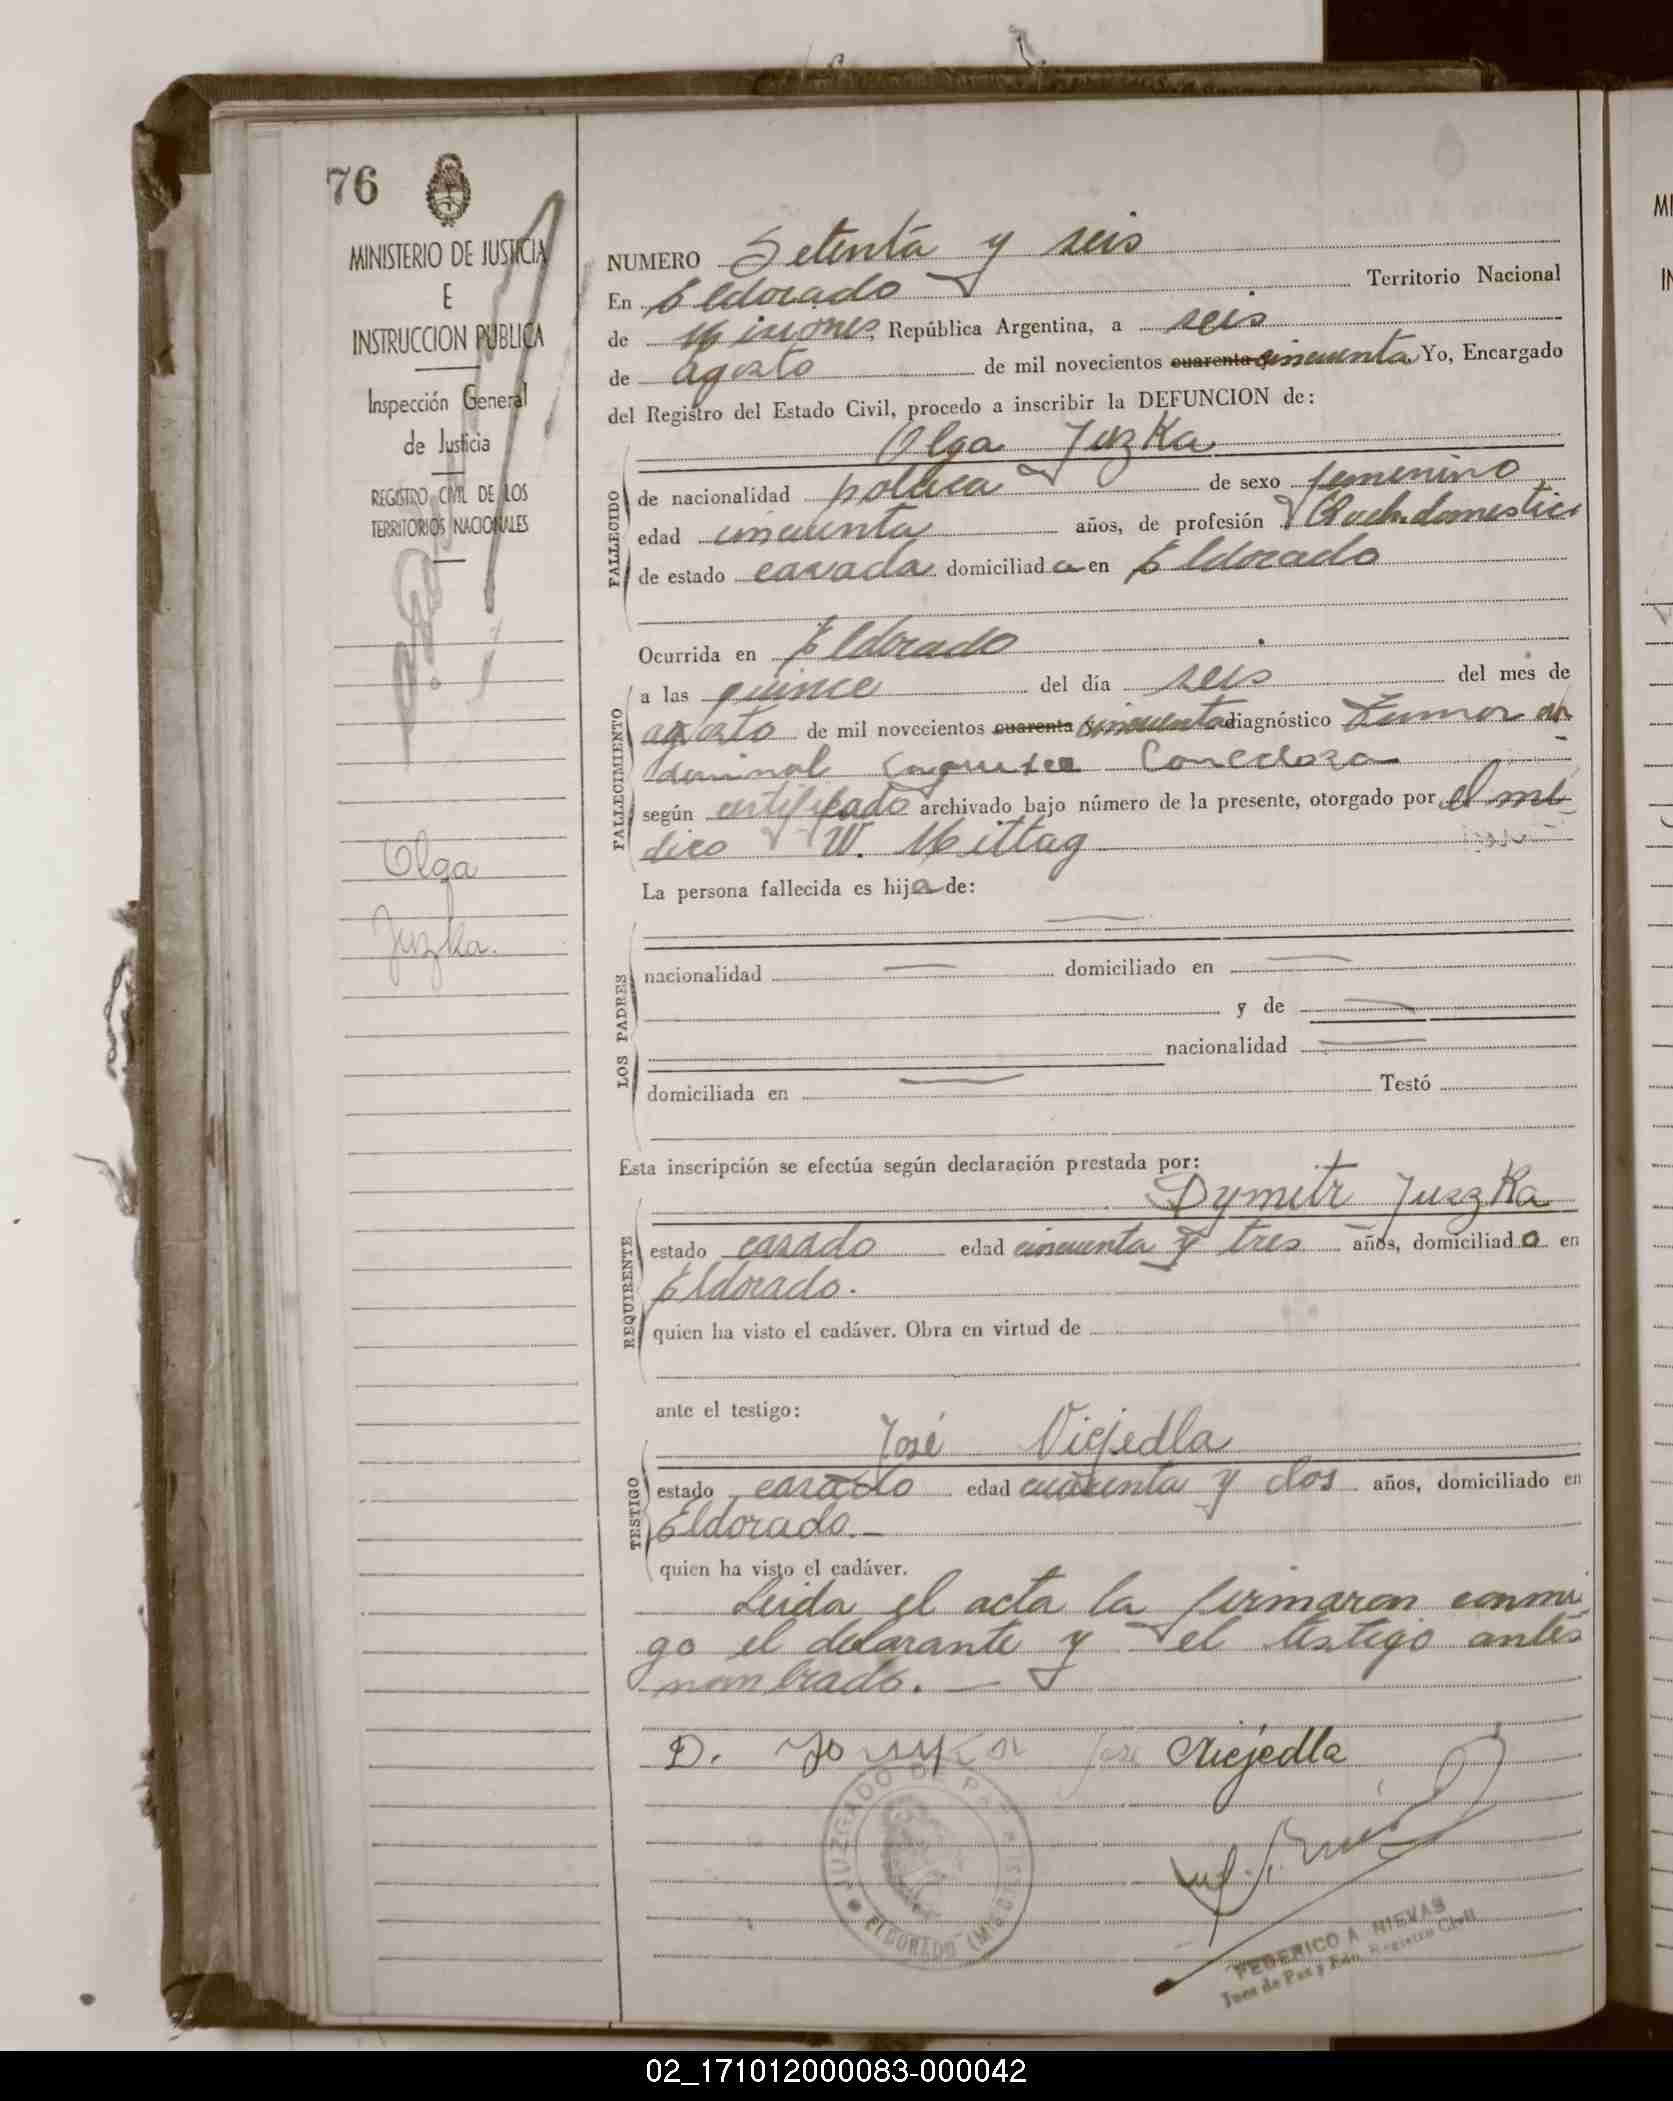 76
MINISTERIO DE JUSTICIA
E
INSTRUCCION PUBLICA
Inspección General
de Justicia
REGISTRO CIVIL DE LOS
TERRITORIOS NACIONALES
Olga
Juzka.
NUMERO Setenta y seis
En Eldorado Territorio Nacional
de Misiones, República Argentina, a seis
de agosto de mil novecientos cuarenta y cincuenta Yo, Encargado
del Registro del Estado Civil, procedo a inscribir la DEFUNCION de:
Olga Juzka.
FALLECIDO
de nacionalidad polaca de sexo femenino
edad cincuenta años, de profesión Queh. domestic
de estado casada domiciliada en Eldorado
Ocurrida en Eldorado
FALLECIMIENTO
a las quince del día seis del mes de
agosto de mil novecientos cuarenta cincuenta diagnóstico Tumor ab
dominal
según certificado archivado bajo número de la presente, otorgado por el mé
dico W. Mittag
La persona fallecida es hija de:
LOS PADRES
nacionalidad — domiciliado en —
y de —
nacionalidad —
domiciliada en — Testó
Esta inscripción se efectúa según declaración prestada por:
Dymitr Juszka
REQUIRENTE
estado casado edad cincuenta y tres años, domiciliado en
Eldorado.
quien ha visto el cadáver. Obra en virtud de
ante el testigo:
José Niejedla
TESTIGO
estado casado edad cuarenta y dos años, domiciliado en
Eldorado.—
quien ha visto el cadáver.
Leida el acta la firmaron conmi
go el delarante y el testigo antes
nombrado. —
D. José Niejedla
JUZGADO DE PAZ
ELDORADO (Misiones)
FEDERICO A. NIEVAS
Juez de Paz y Edo. Registro Civil
02_171012000083-000042